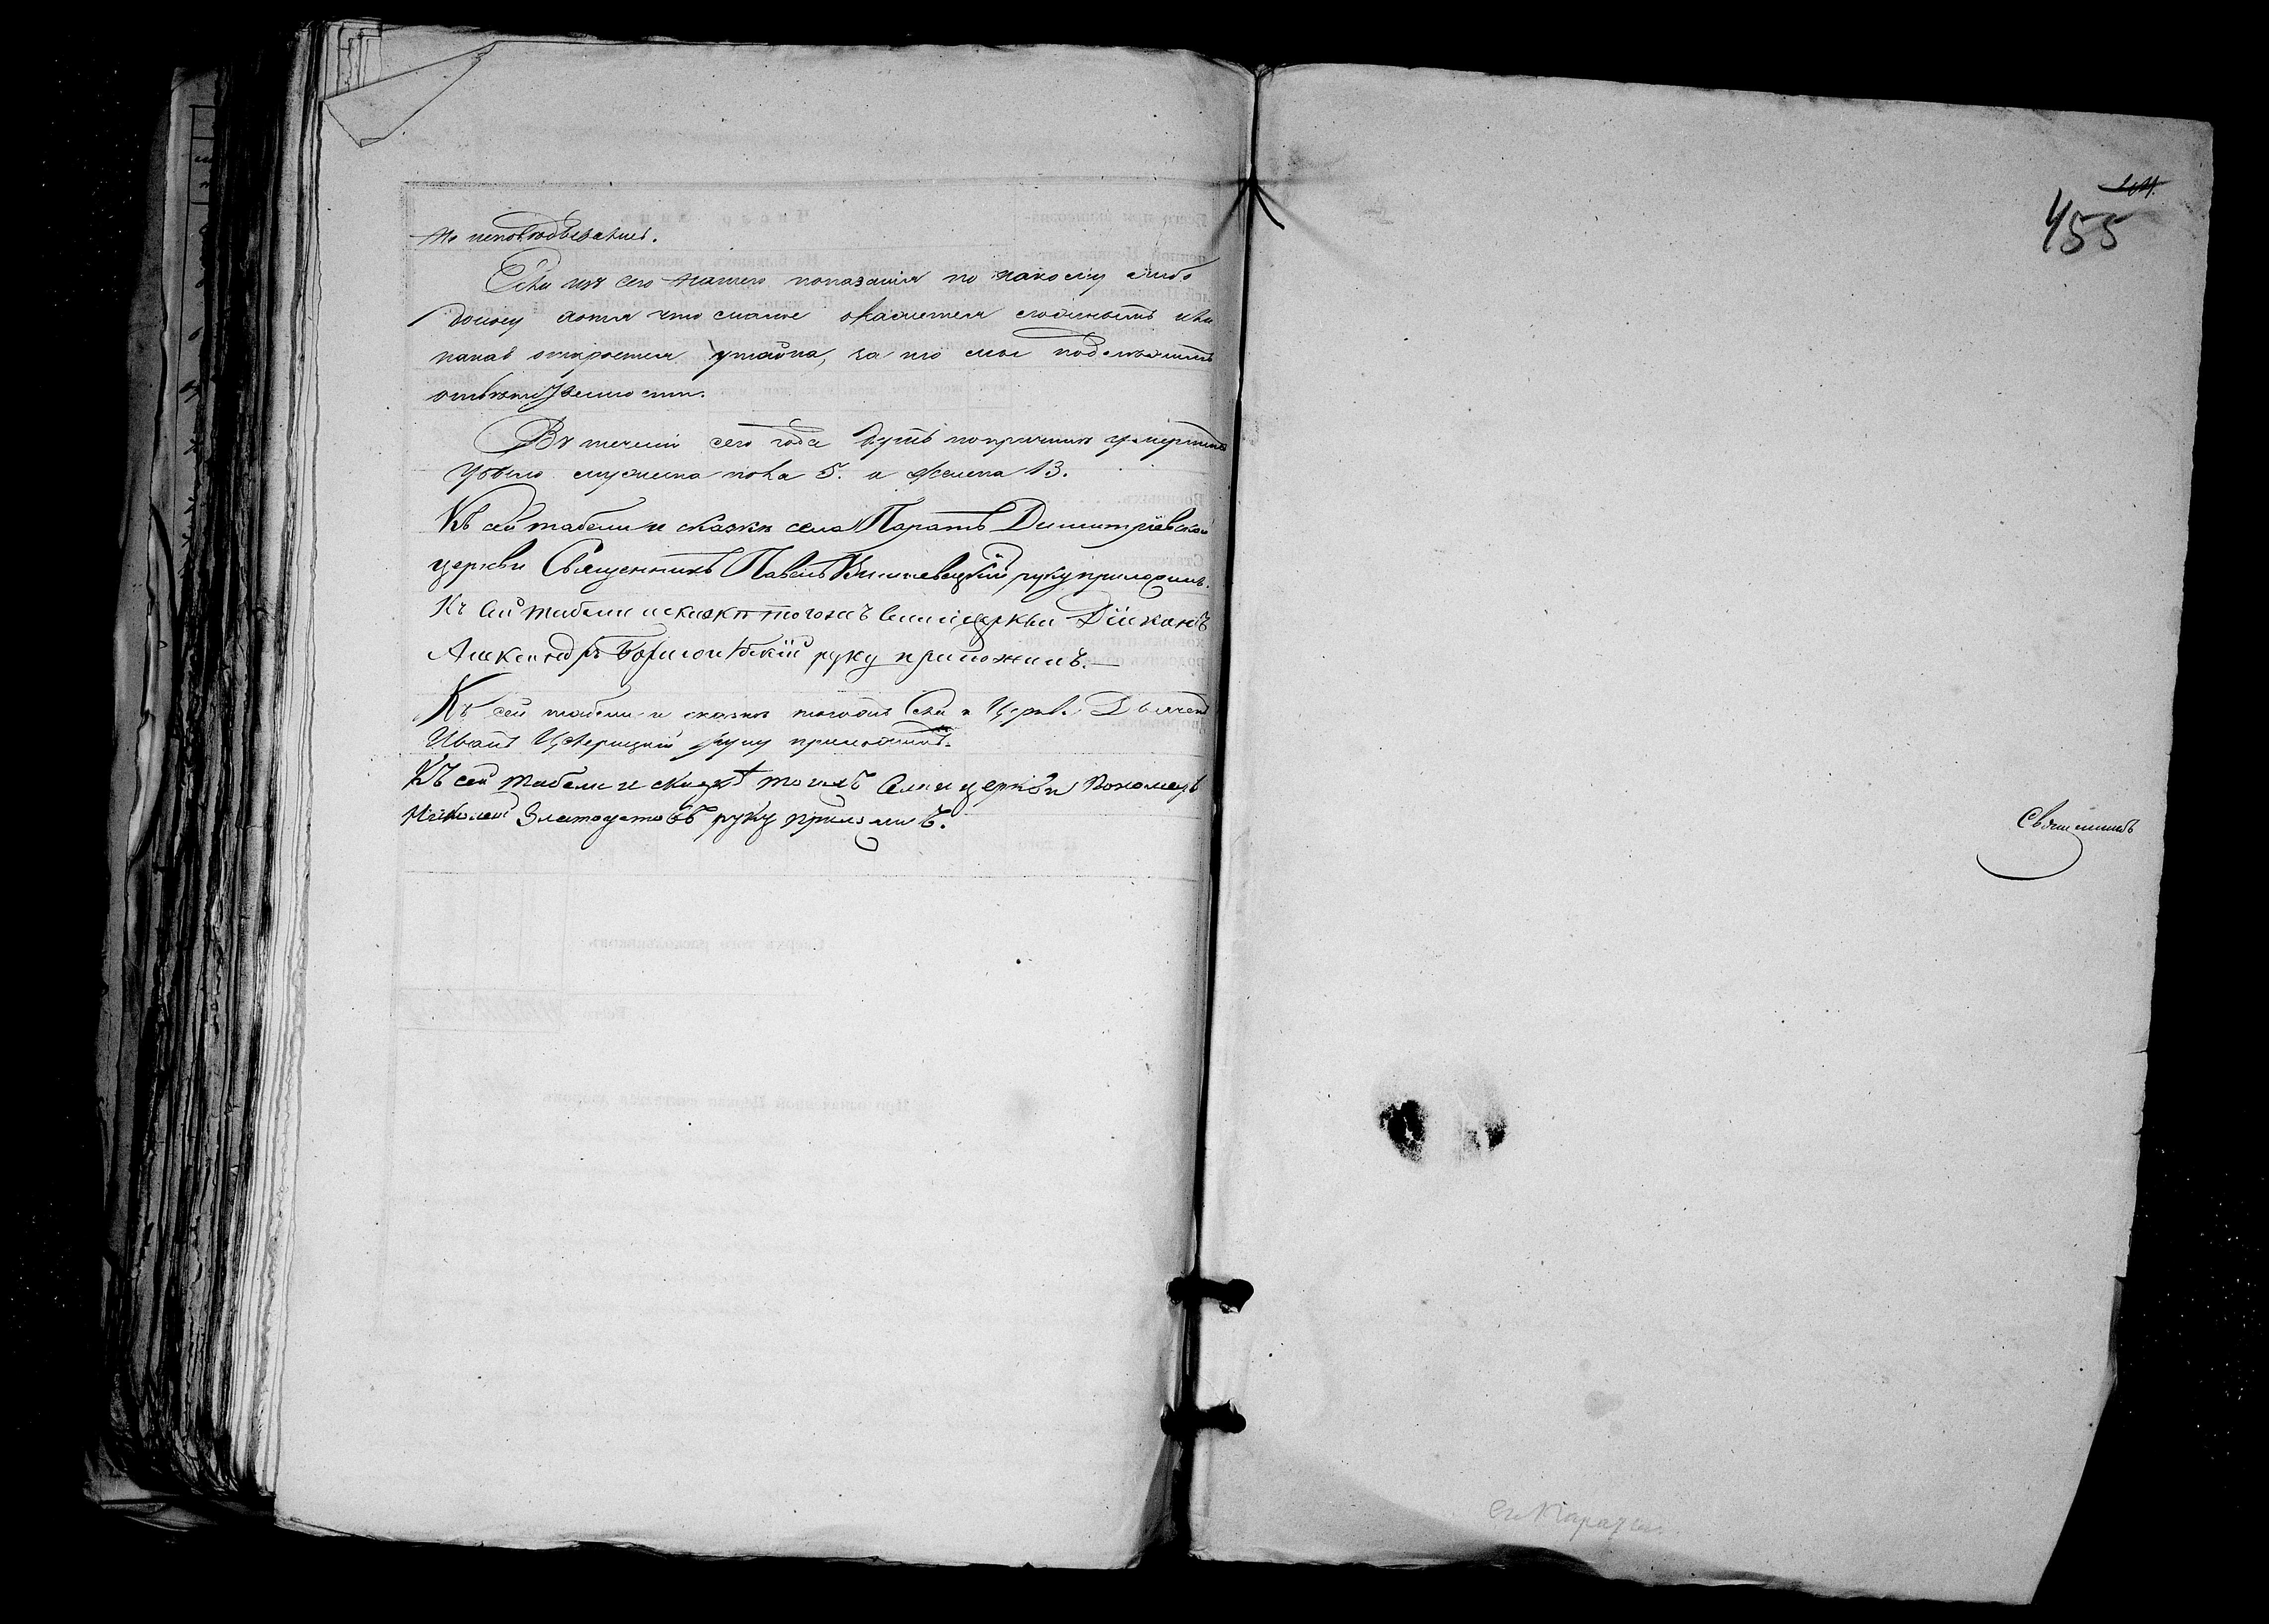 то неисповѣдывались.
Если изъ сего нашего показанія по какому либо
доносу хотя что малое окажется ложнымъ или
какая откроется утайка, за то мы подлежимъ
отвѣтственности.
Въ теченіи сего года душъ по причинѣ умертвія
убыло мужеска пола 5. а женска 13.
Къ сей табели и сказкѣ села Паратъ Димитріевской
церкви Священникъ Павелъ руку приложилъ.
Къ сей табели и сказкѣ тогожъ села церкви Діаконъ
Александръ руку приложилъ.
Къ сей табели и сказкѣ тогожъ Села и Церкви Дьячекъ
Иванъ руку приложилъ.
Къ сей табели и сказкѣ тогожъ села и церкви Пономарь
Николай Златоустовъ руку приложилъ.
455
Священникъ